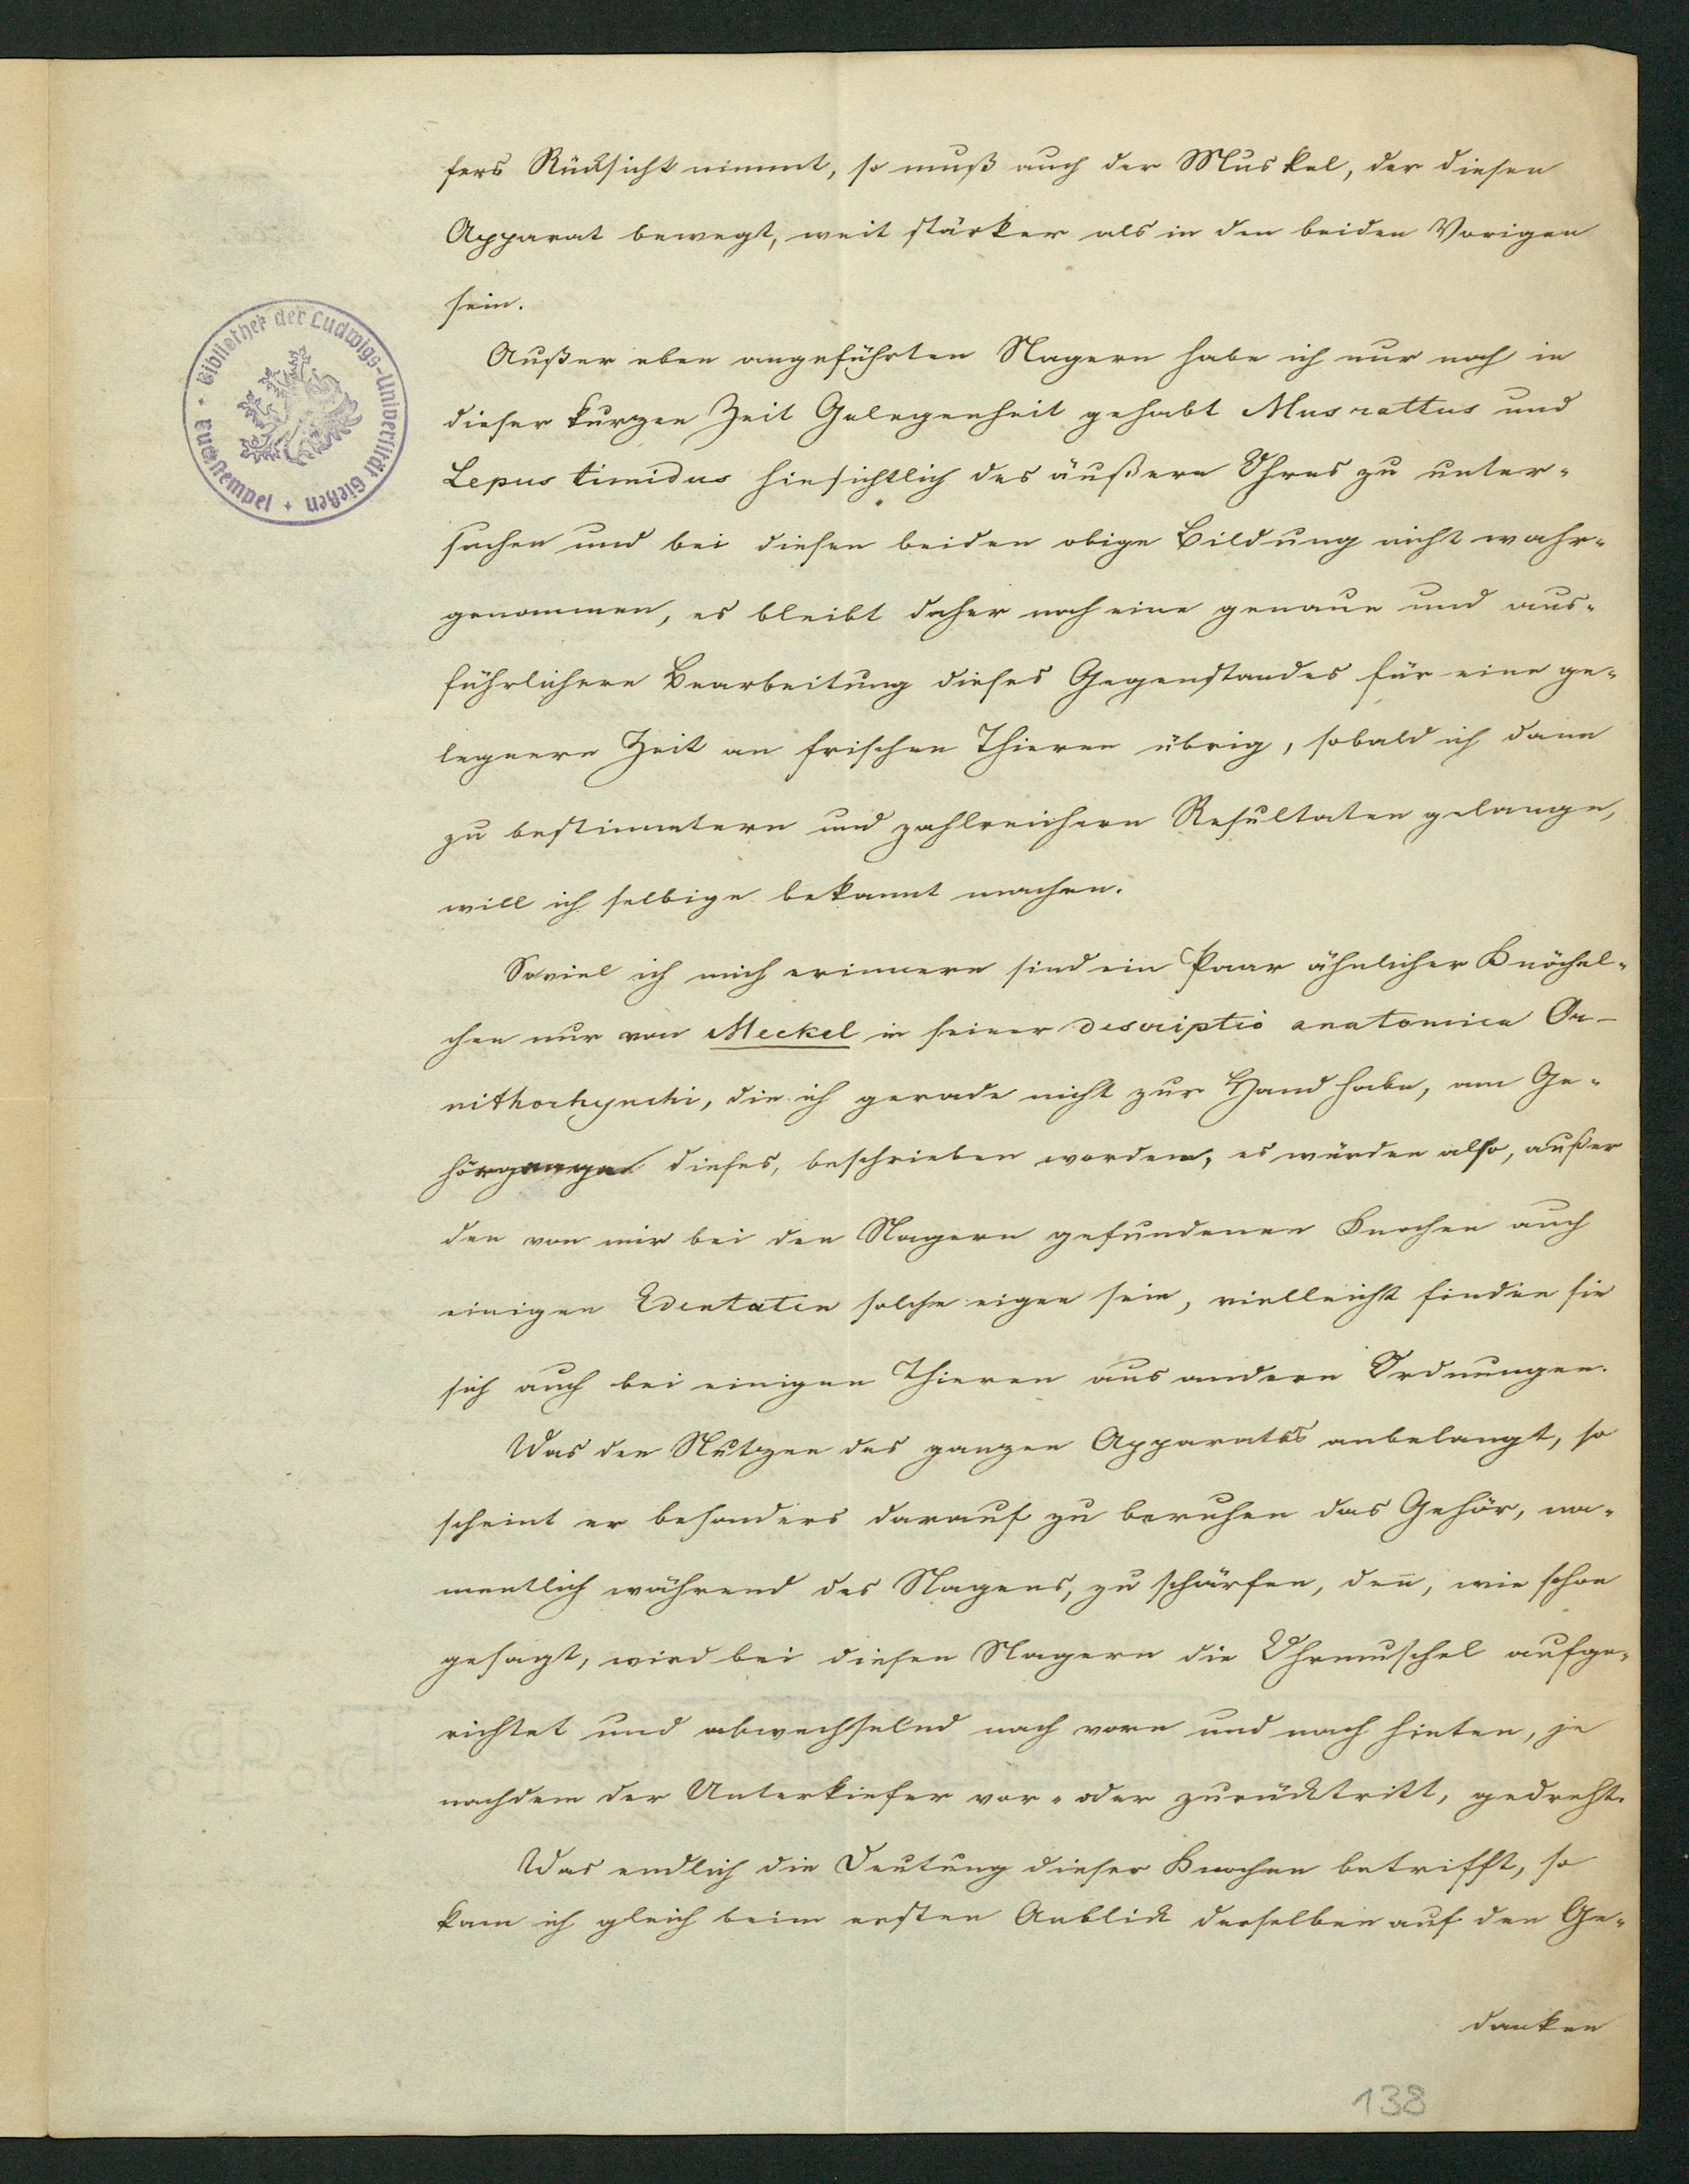 fers Rücksicht nimmt, so muß auch der Muskel, der diesen
Apparat bewegt, weit stärker als in den beiden Vorigen
sein.
Außer eben angeführten Nagern habe ich nur noch in
dieser kurzen Zeit Gelegenheit gehabt Mus rattus und
Lepus timidus hinsichtlich des äußern Ohres zu unter-
suchen und bei diesen beiden obige Bildung nicht wahr-
genommen, es bleibt daher noch eine genaue und aus-
führlichere Bearbeitung dieses Gegenstandes für eine ge-
legnere Zeit an frischen Thieren übrig, sobald ich dann
zu bestimmtern und zahlreichern Resultaten gelange,
will ich selbige bekannt machen.
Soviel ich mich erinnere sind ein Paar ähnlicher Knöchel-
chen nur von Meckel in seiner descriptio anatomica Or-
nithorhynchi, die ich gerade nicht zur Hand habe, am Ge-
hörgange dieses, beschrieben worden, es würden also, außer
den von mir bei den Nagern gefundenen Knochen auch
einigen Edentaten solche eigen sein, vielleicht finden sie
sich auch bei einigen Thieren aus andern Ordnungen.
Was den Nutzen des ganzen Apparates anbelangt, so
scheint er besonders darauf zu beruhen das Gehör, na-
mentlich während des Nagens, zu schärfen, den̅, wie schon
gesagt, wird bei diesen Nagern die Ohrmuschel aufge-
richtet und abwechselnd nach vorn und nach hinten, je
nachdem der Unterkiefer vor- oder zurücktritt, gedreht.
Was endlich die Deutung dieser Knochen betrifft, so
kam ich gleich beim ersten Anblick derselben auf den Ge-
danken
138
Bibliothek der Ludwigs-Universität Gießen